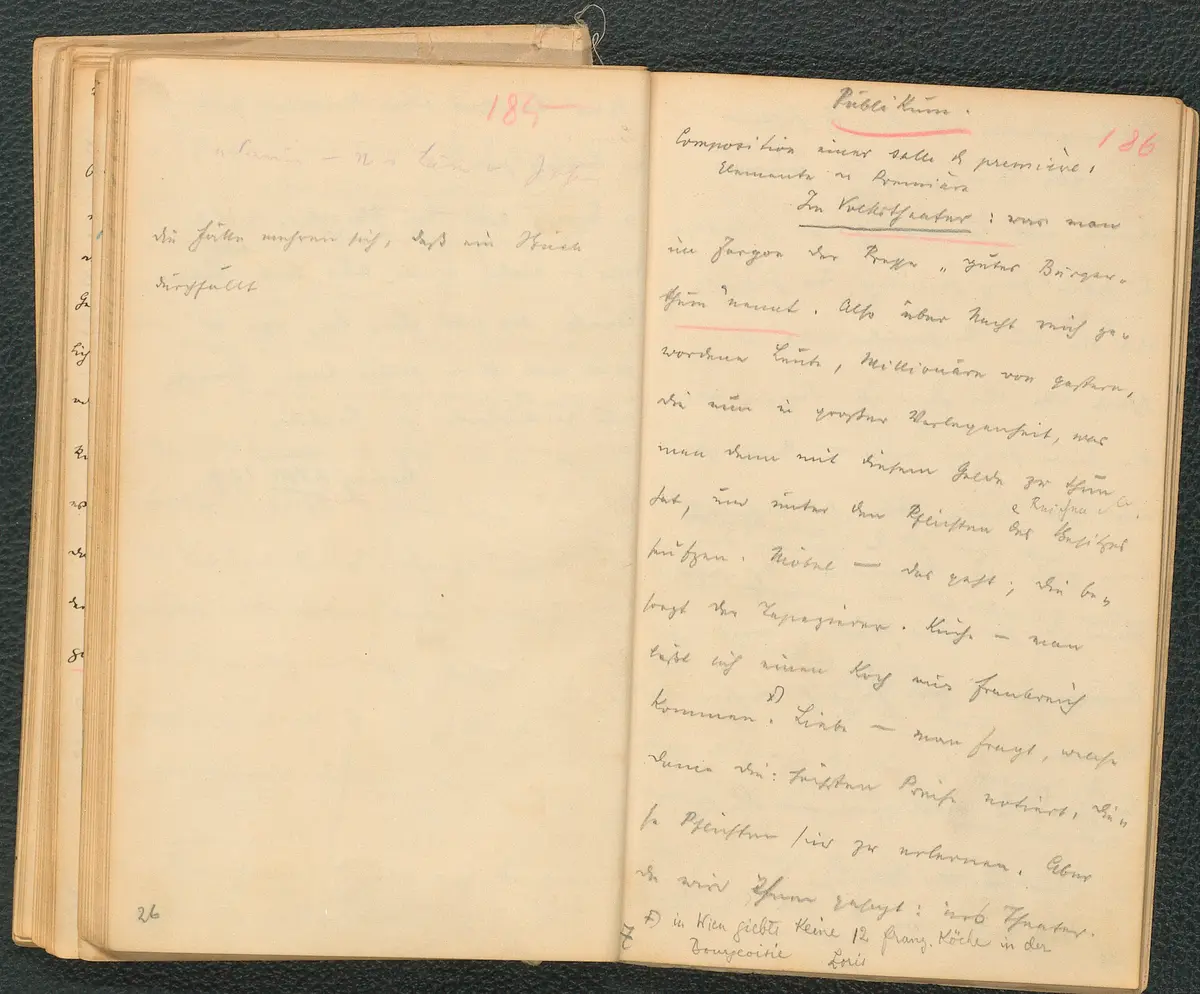 185
die Fälle mehren sich, daß ein Stück
durchfällt
26
Publikum.
186
Composition einer salle de première.
Elemente der Première
Im Volkstheater: was man
im Jargon der Presse „gutes Bürger-
thum" nennt. Also über Nacht reich ge-
wordene Leute, Millionäre von gestern,
die nun in großer Verlegenheit, was
man denn mit diesem Gelde zu thun
hat, und unter den Pflichten des Besitzes
seufzen. Möbel — das geht; die be-
sorgt der Tapezierer. Küche — man
läßt sich einen Koch aus Frankreich
kommen. x) Liebe — man fragt, welche
Dame die höchsten Preise notiert. Die-
se Pflichten sind zu erlernen. Aber
da wird ihnen gesagt: ins Theater.
x) in Wien giebts keine 12 franz. Köche in der
Bourgeoisie Loris